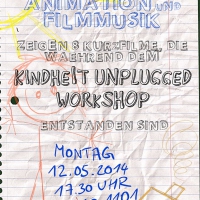 ANIMATION UND
FILMMUSIK
ZEIGEN 8 KURZFILME, DIE
WAEHREND DEM
KINDHEIT UNPLUGGED
WORKSHOP
ENTSTANDEN SIND
MONTAG
12.05.2014
17.30 UHR
1101